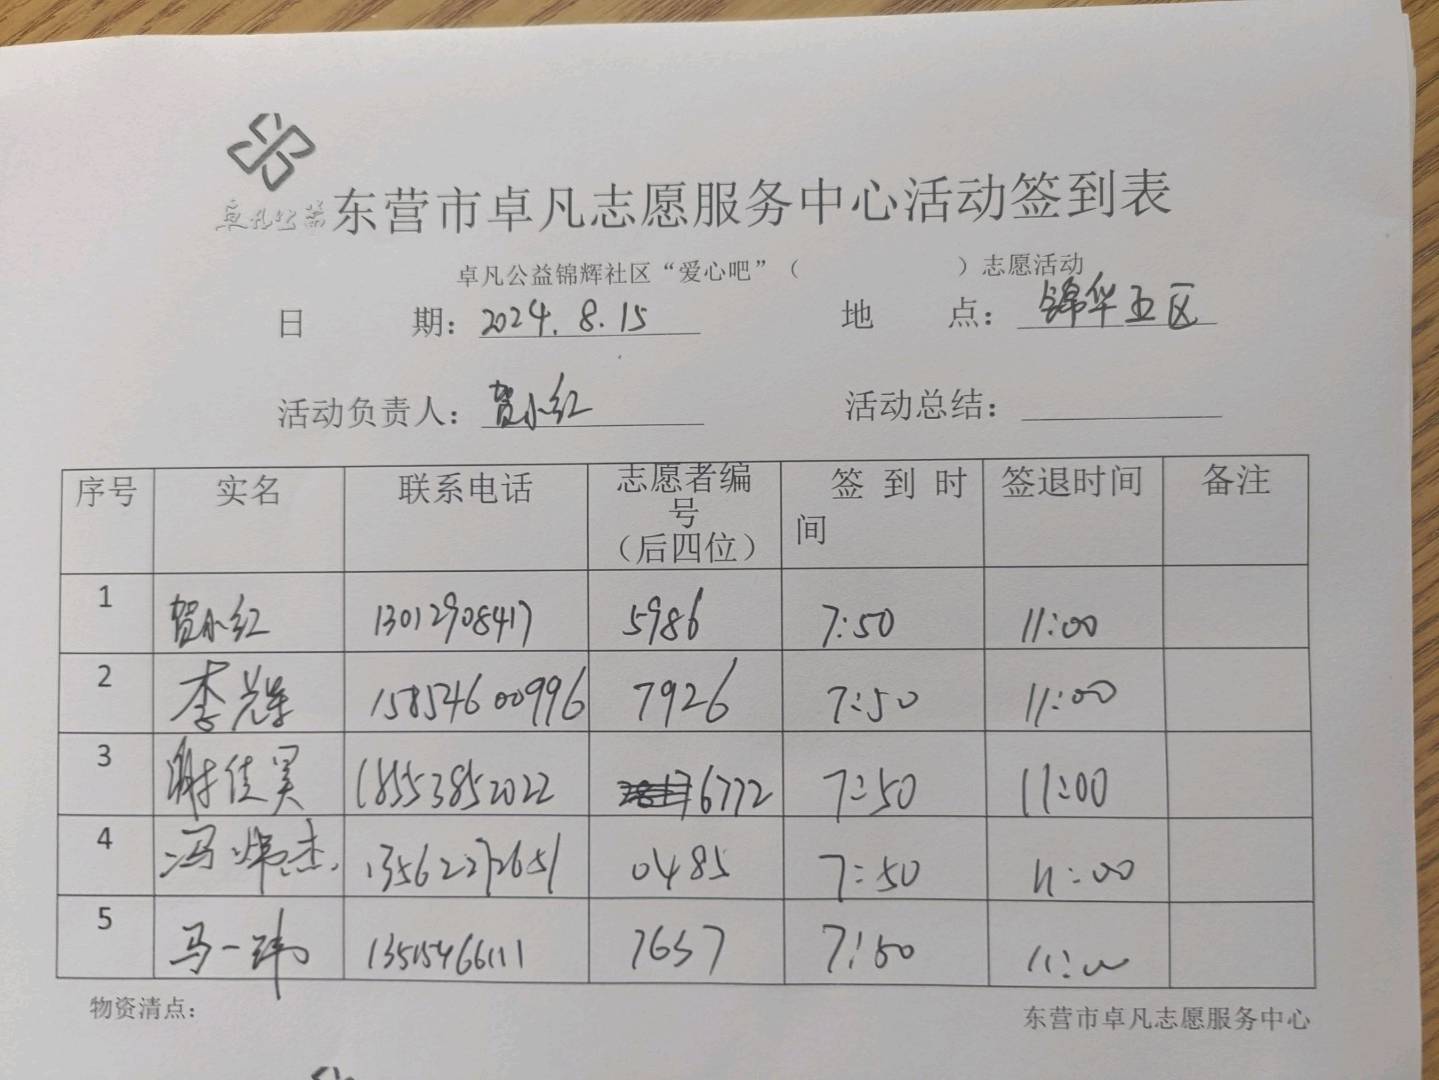 卓凡公益
东营市卓凡志愿服务中心活动签到表
卓凡公益锦辉社区“爱心吧”（ ）志愿活动
日 期：2024.8.15 地 点：锦华五区
活动负责人：贺小红 活动总结：
序号 实名 联系电话 志愿者编号（后四位） 签到时间 签退时间 备注
1 贺小红 13012908417 5986 7:50 11:00
2 李辉 15854600996 7926 7:50 11:00
3 谢佳昊 18553852022 6772 7:50 11:00
4 冯炜杰 13562272651 0485 7:50 11:00
5 马一玮 13515466111 7657 7:50 11:00
物资清点： 东营市卓凡志愿服务中心